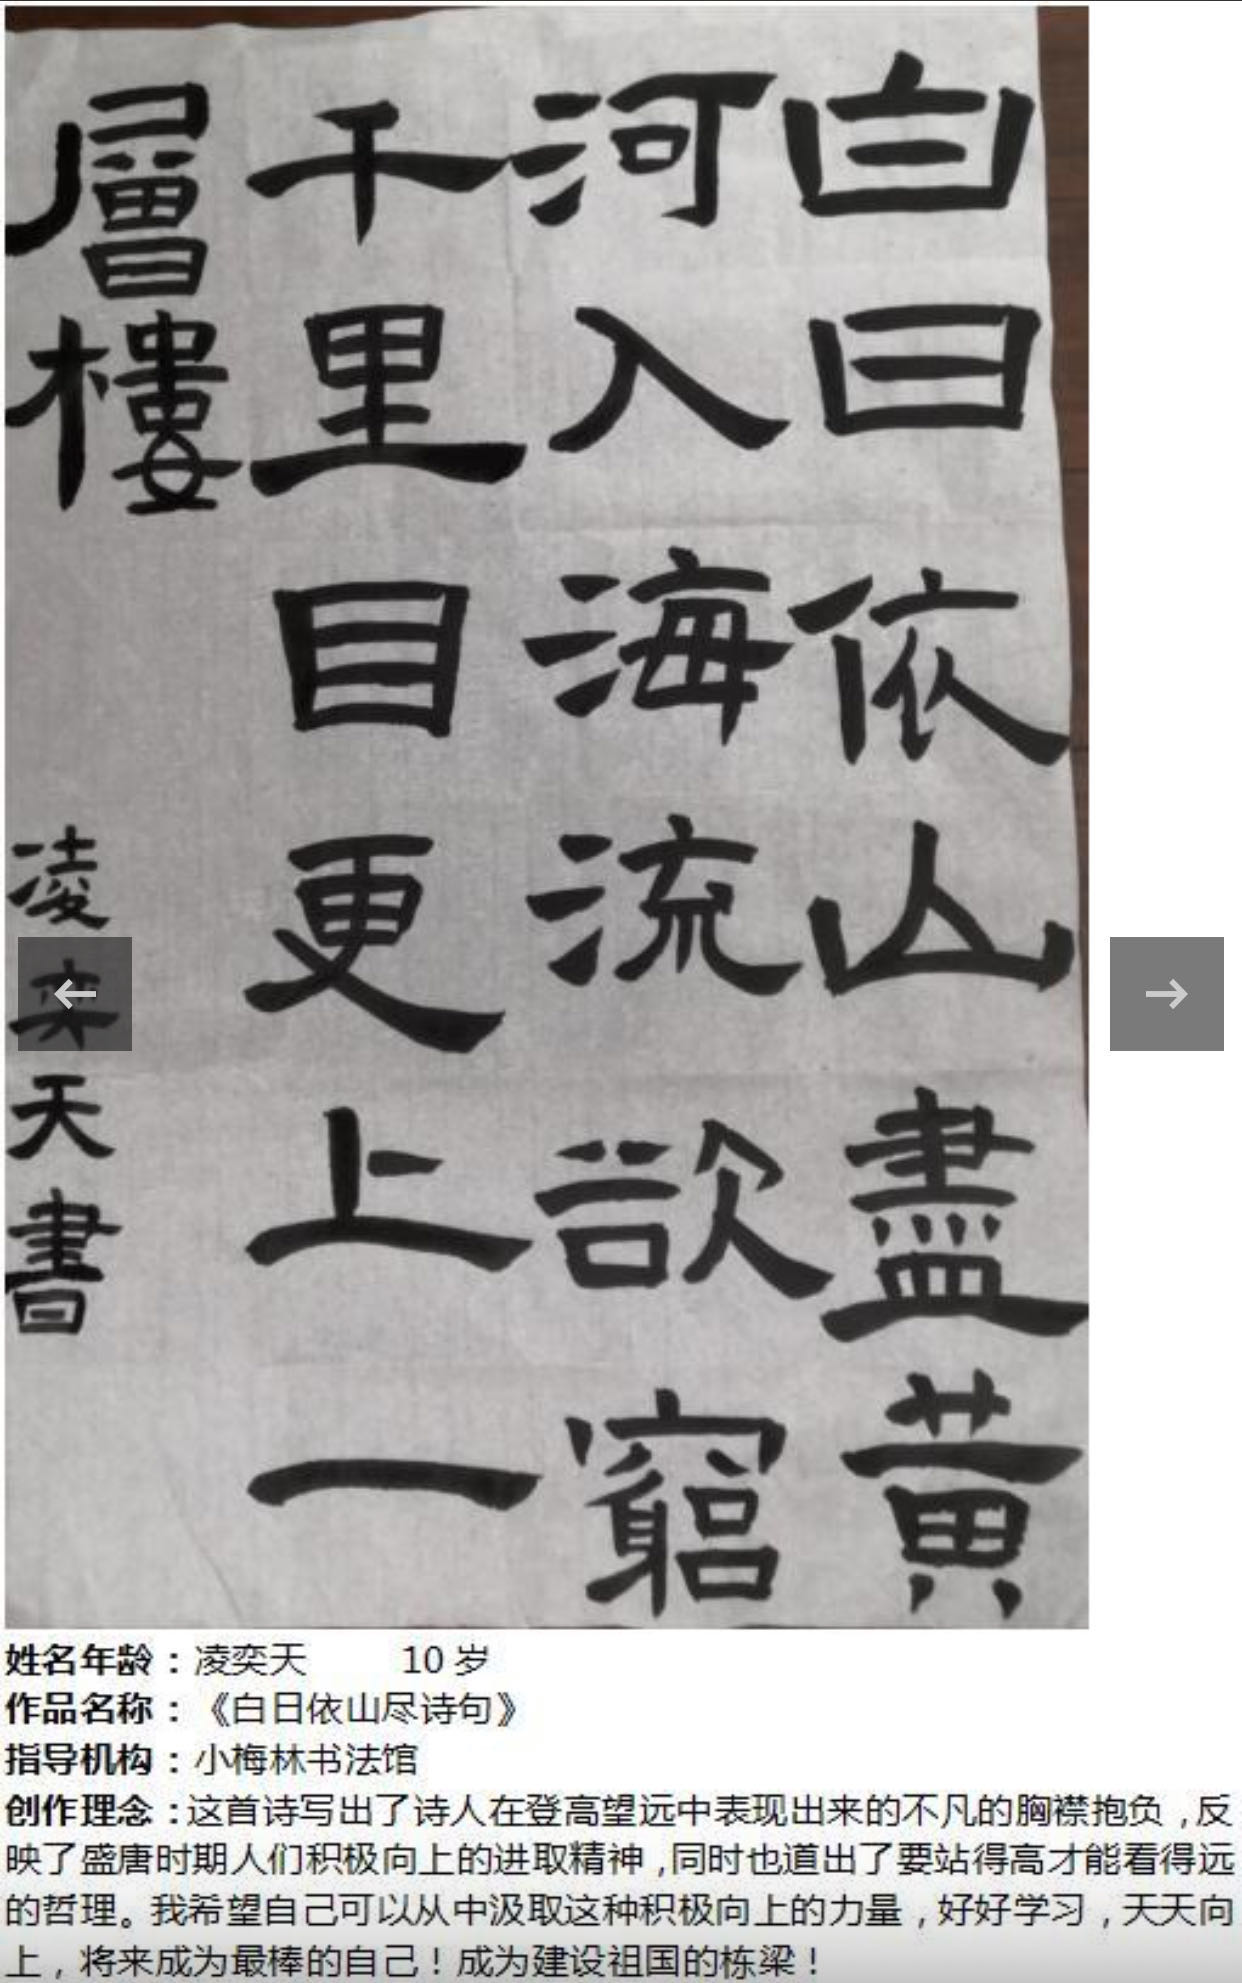 白日依山盡黃
河入海流欲竆
千里目更上一
層樓
凌奕天書
姓名年龄：凌奕天 10 岁
作品名称：《白日依山尽诗句》
指导机构：小梅林书法馆
创作理念：这首诗写出了诗人在登高望远中表现出来的不凡的胸襟抱负，反
映了盛唐时期人们积极向上的进取精神，同时也道出了要站得高才能看得远
的哲理。我希望自己可以从中汲取这种积极向上的力量，好好学习，天天向
上，将来成为最棒的自己！成为建设祖国的栋梁！